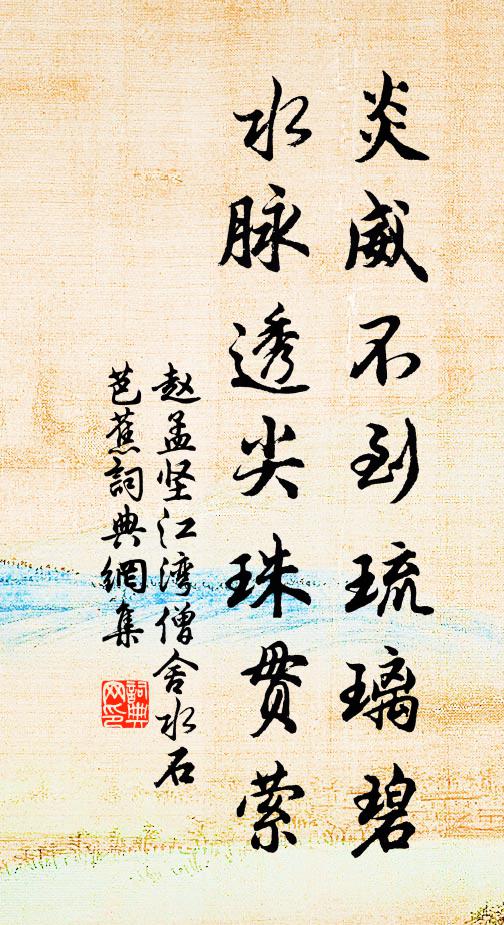 炎威不到琉璃碧
水脉透尖珠贯萦
赵孟坚江湾僧舍水石
芭蕉詞典網集
詞典
网印